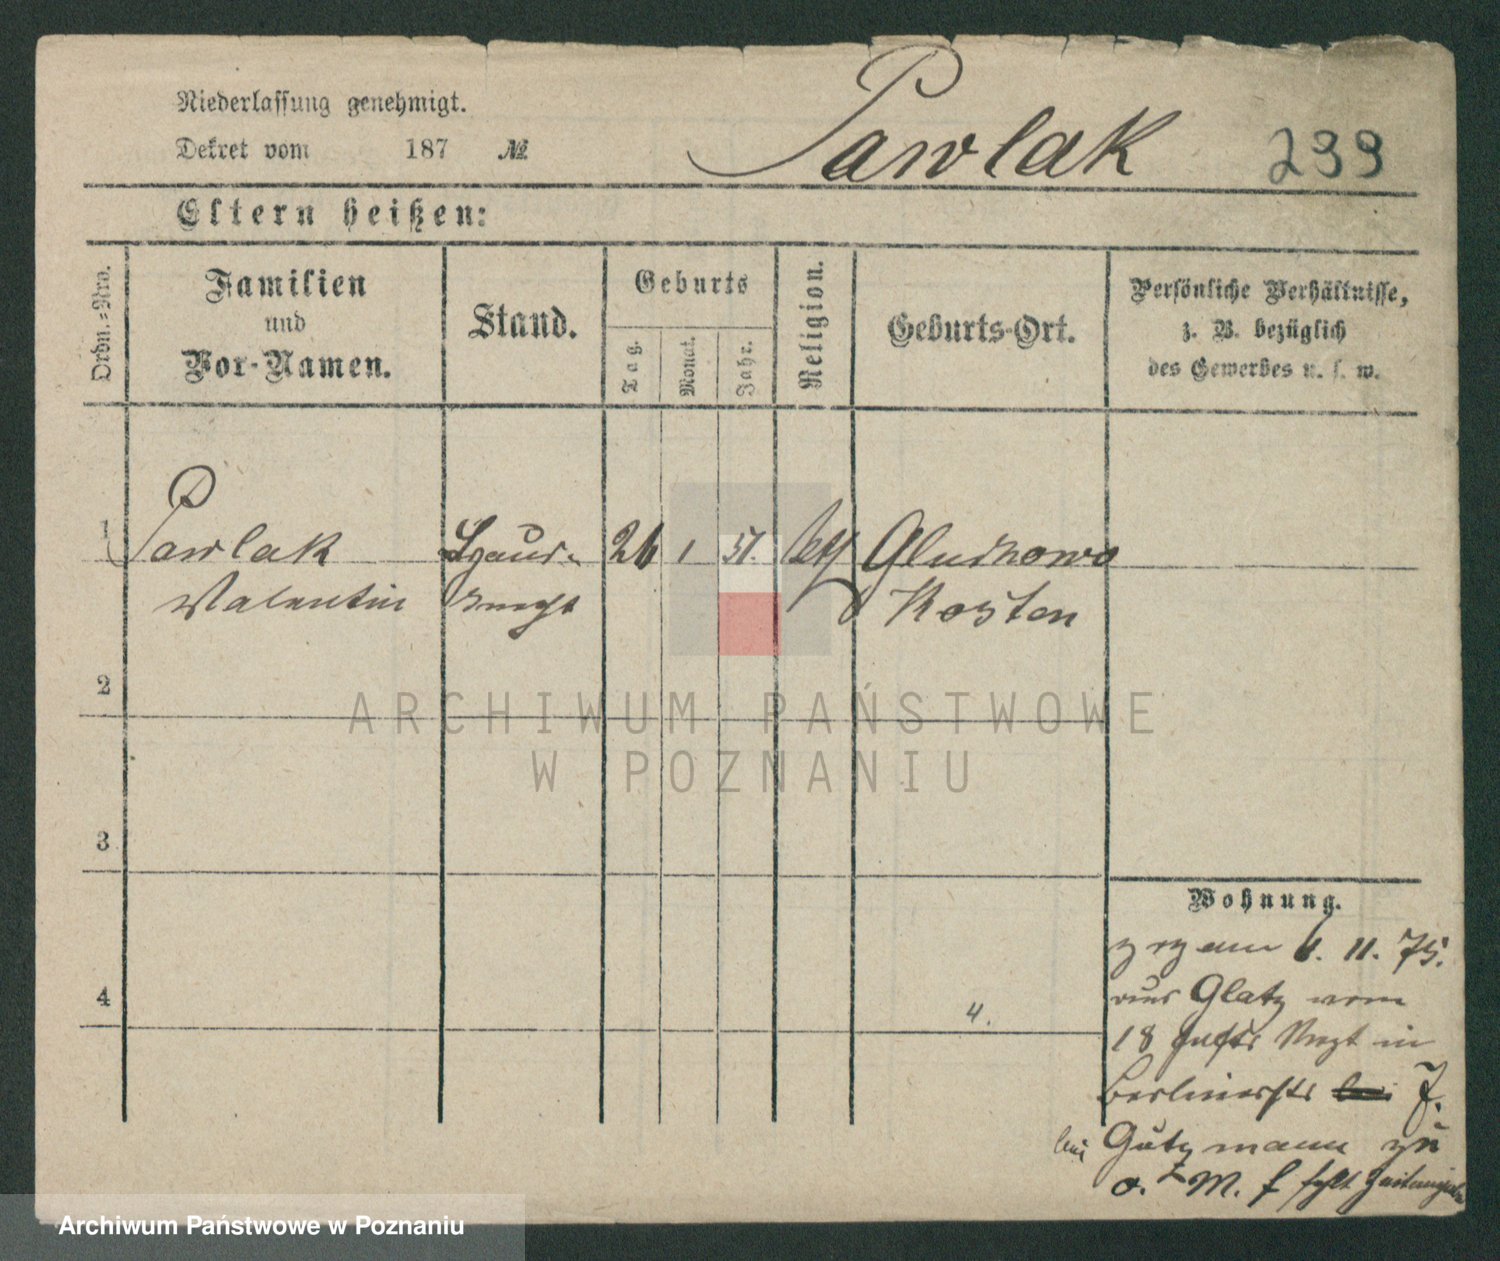 Niederlassung genehmigt.
Dekret vom 187 №
Pawlak 299
Eltern heißen:
Ordn.-Nro.
Familien
und
Vor-Namen.
Stand.
Geburts
Tag.
Monat.
Jahr.
Religion.
Geburts-Ort.
Persönliche Verhältnisse,
z. B. bezüglich
des Gewerbes u. s. w.
1 Pawlak Haus- 26 1 51. Gluchowo
Valentin knecht Kosten
2
3
4
4.
Wohnung.
6. 11. 75.
aus Glatz vom
18 Regt in
Berlinerstr 7.
bei Gutzmann
ARCHIWUM PAŃSTWOWE
W POZNANIU
Archiwum Państwowe w Poznaniu